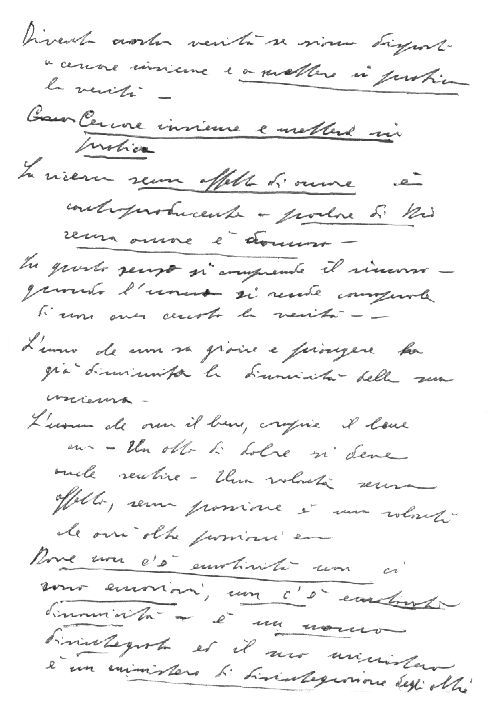 Diventa nostra verità se siamo disposti
a cercare insieme e a mettere in pratica
la verità –
Cercare insieme e mettere in
pratica
La ricerca senza affetto di amore è
controproducente – parlare di Dio
senza amore è dannoso –
In questo senso si comprende il rimorso –
quando l'uomo si rende consapevole
di non aver cercato la verità – –
L'uomo che non sa gioire e piangere ha
già diminuita la dinamicità della sua
coscienza –
L'uomo che ama il bene, compie il bene
– Un atto di dolore si deve
anche sentire – Una volontà senza
affetto, senza passione è una volontà
che avrà altre passioni
Dove non c'è emotività non ci
sono emozioni, non c'è
dinamicità – è un uomo
disintegrato ed il suo ministero
è un ministero di disintegrazione degli altri